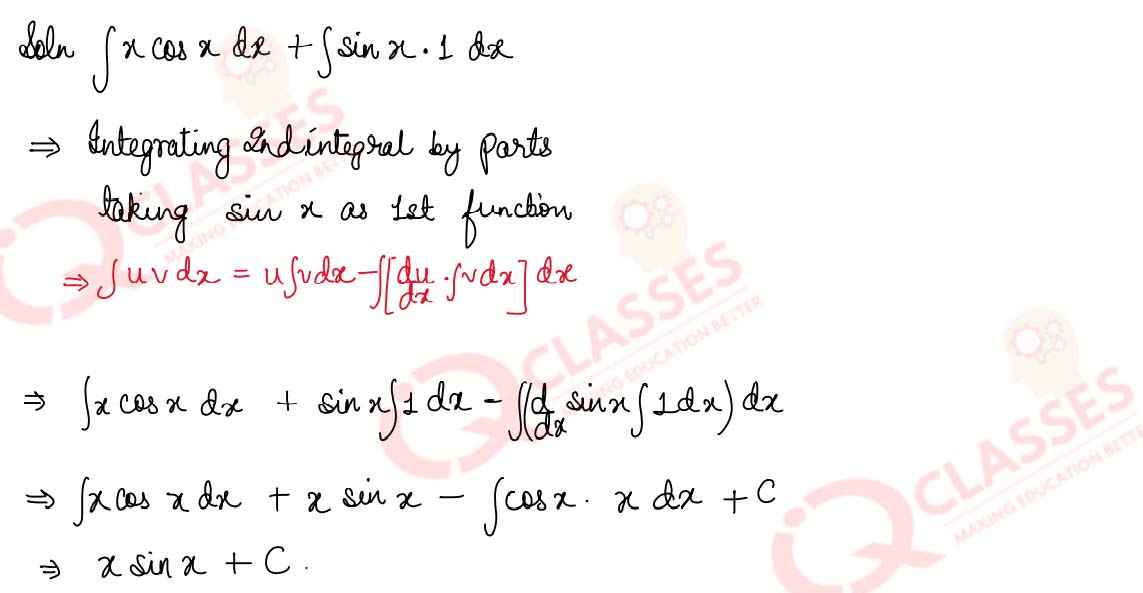 Soln ∫ x cos x dx + ∫ sin x · 1 dx
⇒ Integrating 2nd integral by parts
taking sin x as 1st function
⇒ ∫ u v dx = u ∫ v dx - ∫ [ du/dx · ∫ v dx ] dx
⇒ ∫ x cos x dx + sin x ∫ 1 dx - ∫ ( d/dx sin x ∫ 1 dx ) dx
⇒ ∫ x cos x dx + x sin x - ∫ cos x · x dx + C
⇒ x sin x + C .
IQ CLASSES
MAKING EDUCATION BETTER
IQ CLASSES
MAKING EDUCATION BETTER
IQ CLASSES
MAKING EDUCATION BETTER